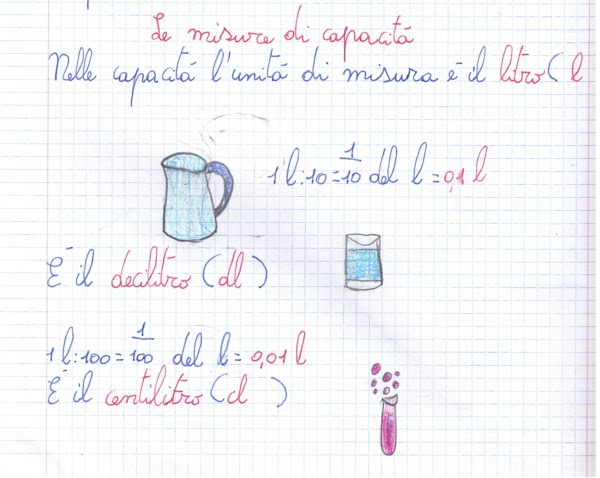 Le misure di capacitá
Nelle capacitá l'unitá di misura é il litro (l
1 l:10=1/10 del l=0,1 l
É il decilitro (dl )
1 l:100=1/100 del l=0,01 l
É il centilitro (cl )